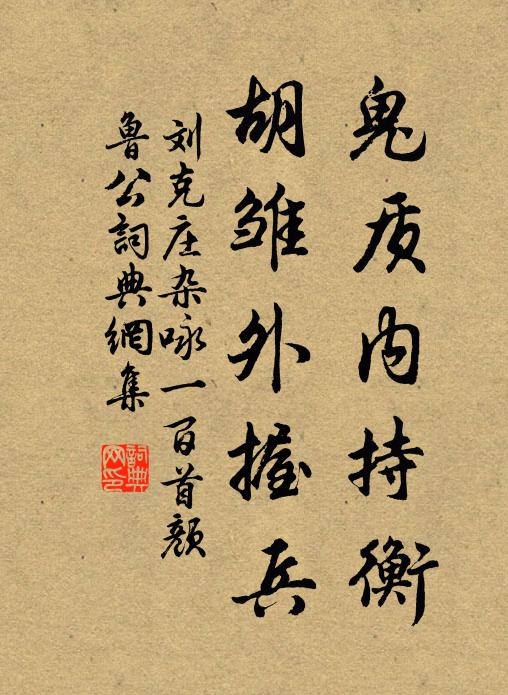 鬼质内持衡
胡雏外握兵
刘克庄杂咏一百首颜
鲁公詞典網集
詞典
网印